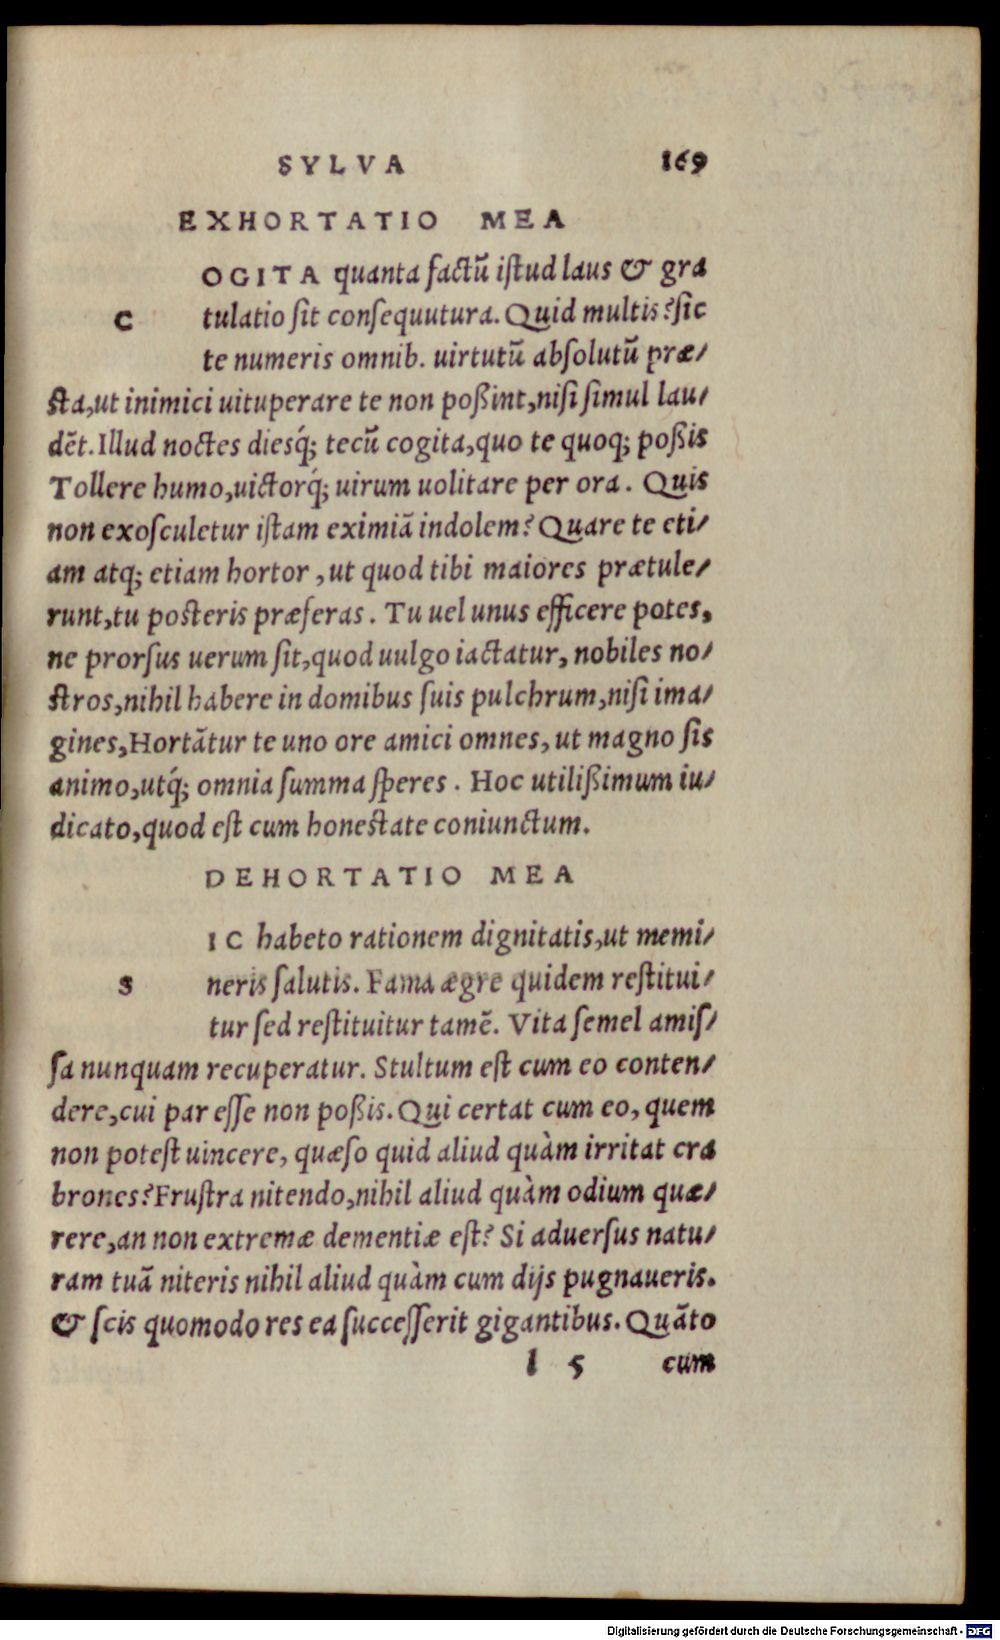 SYLVA 169
EXHORTATIO MEA
C OGITA quanta factū istud laus & gra
tulatio sit consequutura. Quid multis? sic
te numeris omnib. uirtutū absolutū præ/
sta, ut inimici uituperare te non poßint, nisi simul lau/
dēt. Illud noctes diesq́; tecū cogita, quo te quoq; poßis
Tollere humo, uictorq́; uirum uolitare per ora. Quis
non exosculetur istam eximiā indolem? Quare te eti/
am atq; etiam hortor, ut quod tibi maiores prætule/
runt, tu posteris præferas. Tu uel unus efficere potes,
ne prorsus uerum sit, quod uulgo iactatur, nobiles no/
stros, nihil habere in domibus suis pulchrum, nisi ima/
gines, Hortātur te uno ore amici omnes, ut magno sis
animo, utq́; omnia summa speres. Hoc utilißimum iu/
dicato, quod est cum honestate coniunctum.
DEHORTATIO MEA
S IC habeto rationem dignitatis, ut memi/
neris salutis. Fama ægre quidem restitui/
tur sed restituitur tamē. Vita semel amis/
sa nunquam recuperatur. Stultum est cum eo conten/
dere, cui par esse non poßis. Qui certat cum eo, quem
non potest uincere, quæso quid aliud quàm irritat cra
brones? Frustra nitendo, nihil aliud quàm odium quæ/
rere, an non extremæ dementiæ est? Si aduersus natu/
ram tuā niteris nihil aliud quàm cum dijs pugnaueris.
& scis quomodo res ea successerit gigantibus. Quāto
l 5 cum
Digitalisierung gefördert durch die Deutsche Forschungsgemeinschaft - DFG